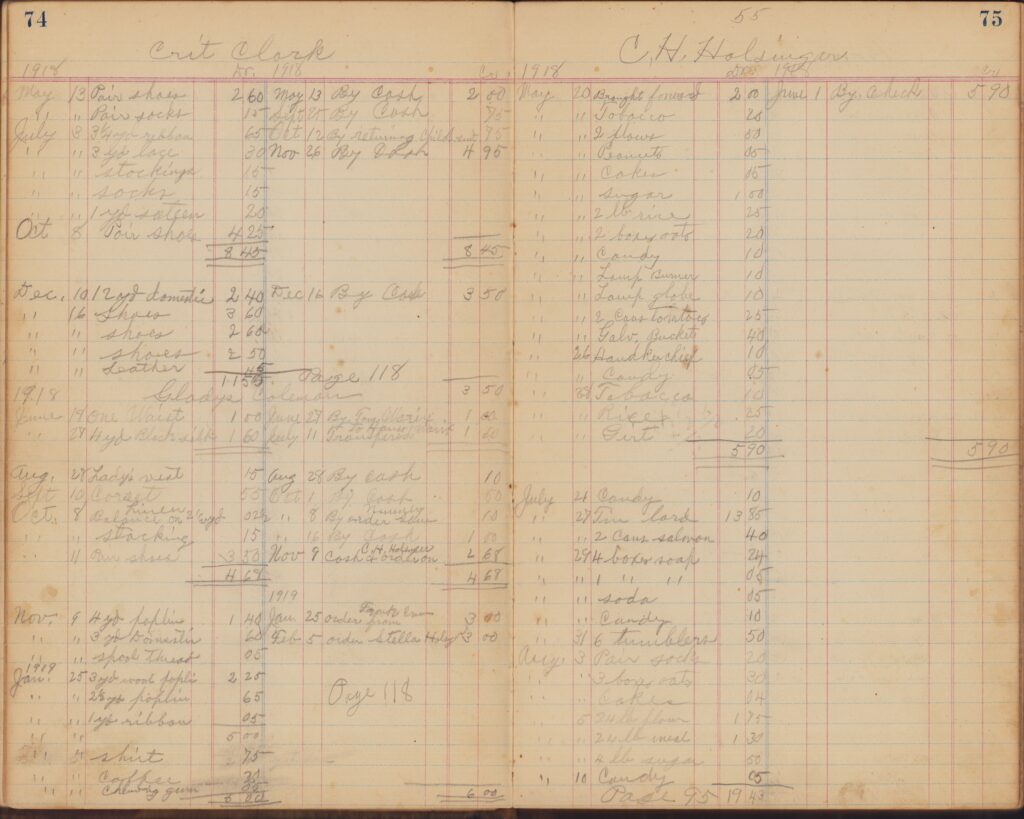 74
Crit Clark
1918 Dr. 1918 Cr.
May 13 Pair shoes 2 60 May 13 By Cash 2 00
" " Pair socks 15 Sept 25 By Cash 75
July 3 3 1/4 yd ribbon 65 Oct 12 By returning Child's 75
" " 3 yd lace 30 Nov 26 By Cash 4 95
" " stockings 15
" " socks 15
" " 1 yd sateen 20
Oct 8 Pair shoes 4 25
8 45 8 45
Dec. 10 12 yd domestic 2 40 Dec 16 By Cash 3 50
" 16 Shoes 3 60
" " shoes 2 60
" " shoes 2 50
" " Leather 45
11 55 Page 118 3 50
1918 Gladys Coleman
June 19 One Waist 1 00 June 27 By 1 00
" 28 4 yd Black silk 1 60 July 11 Transfered 1 60
Aug. 28 Lady's vest 15 Aug 28 By cash 10
Sept 10 Corset 55 Oct 1 By Cash 50
Oct. 8 Balance on linen 2 1/2 yd 02 1/2 " 8 By order 10
" " stocking 15 " 16 By Cash 1 00
" 11 Pair shoes 3 50 Nov 9 Cash & order on C. H. Holsinger 2 68
4 69 4 69
1919
Nov. 9 4 yd poplin 1 40 Jan 25 order from Frank 3 00
" " 3 yd Domestic 60 Feb 5 order Stella 3 00
" " spool thread 05
1919
Jan. 25 3 yd wool poplin 2 25
" " 2 1/2 yd poplin 65 Page 118
" " 1 yd ribbon 05
" " 5 00
" " shirt 75
" " Coffee 20
" " Chewing gum 05
6 00 6 00
55
75
C. H. Holsinger
1918 Dr. 1918 Cr
May 20 Brought forward 2 00 June 1 By Check 5 90
" " Tobacco 20
" " 2 plows 50
" " Peanuts 05
" " Cakes 05
" " sugar 1 00
" " 2 lb rice 25
" " 2 boxes oats 20
" " Candy 10
" " Lamp Burner 10
" " Lamp globe 10
" " 2 Cans tomatoes 25
" " Galv. Bucket 40
" 26 Handkerchief 10
" " Candy 05
" 28 Tobacco 10
" " Rice 25
" " 20
5 90 5 90
July 21 Candy 10
" 27 Tin lard 13 85
" " 2 Cans salmon 40
" 29 4 boxes soap 24
" " 1 " " 05
" " soda 05
" " Candy 10
" 31 6 tumblers 50
Aug 3 Pair socks 20
" " 3 boxes oats 30
" " Cakes 04
" 5 24 lb flour 1 75
" " 24 lb meal 1 30
" " 4 lb sugar 50
" 10 Candy 05
Page 95 19 43